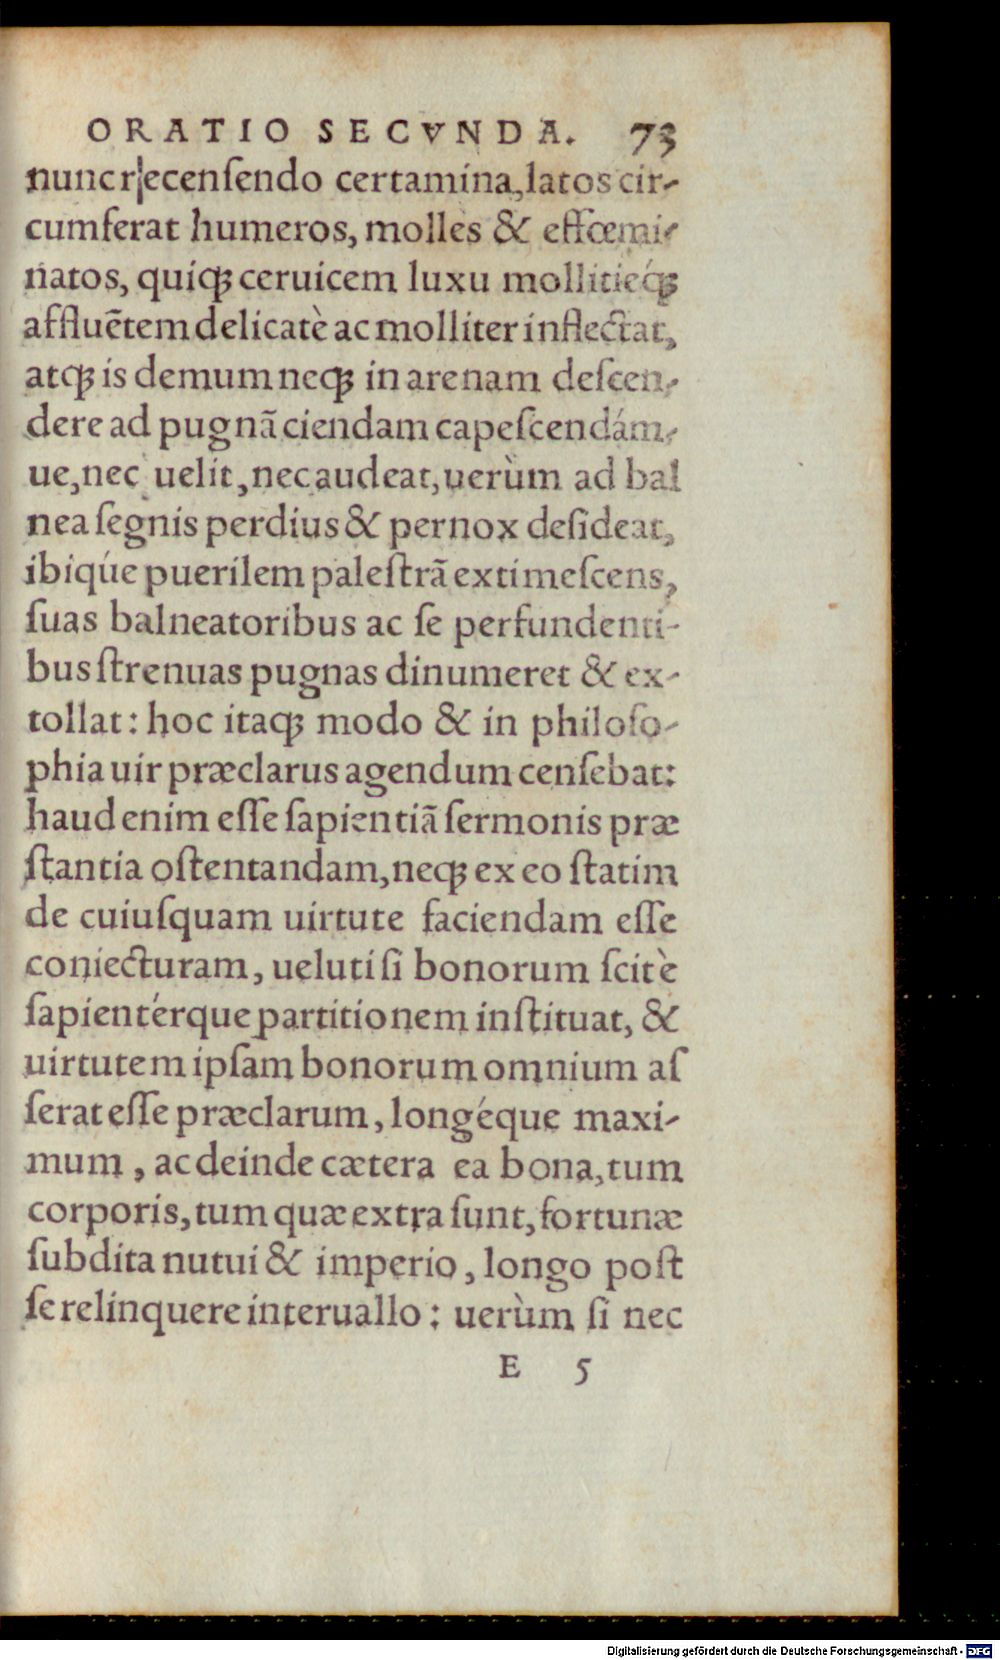 ORATIO SECVNDA. 73
nunc r|ecenſendo certamina, latos cir-
cumferat humeros, molles & effœmi-
natos, quiq́; ceruicem luxu mollitieq́;
affluẽtem delicatè ac molliter inflectat,
atq; is demum neq; in arenam deſcen-
dere ad pugnã ciendam capeſcendám-
ue, nec uelit, nec audeat, uerùm ad bal
nea ſegnis perdius & pernox deſideat,
ibiqúe puerilem paleſtrã extimeſcens,
ſuas balneatoribus ac ſe perfundenti-
bus ſtrenuas pugnas dinumeret & ex-
tollat: hoc itaq; modo & in philoſo-
phia uir præclarus agendum cenſebat:
haud enim eſſe ſapientiã ſermonis præ
ſtantia oſtentandam, neq; ex eo ſtatim
de cuiuſquam uirtute faciendam eſſe
coniecturam, ueluti ſi bonorum ſcitè
ſapientérque partitionem inſtituat, &
uirtutem ipſam bonorum omnium aſ
ſerat eſſe præclarum, longéque maxi-
mum, ac deinde cætera ea bona, tum
corporis, tum quæ extra ſunt, fortunæ
ſubdita nutui & imperio, longo poſt
ſe relinquere interuallo: uerùm ſi nec
E 5
Digitalisierung gefördert durch die Deutsche Forschungsgemeinschaft - DFG